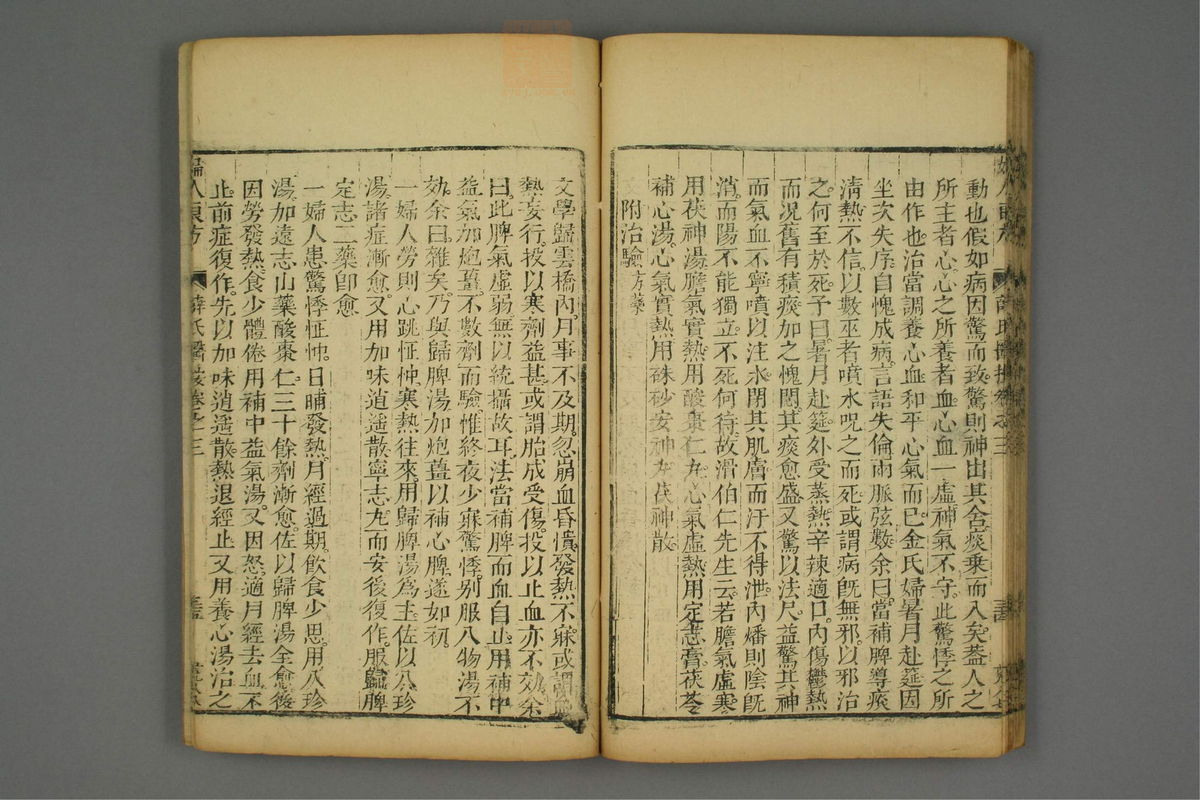 動也假如病因驚而致驚則神出其舍痰乗而入矣葢人之
所主者心心之所養者血心血一虚神氣不守此驚悸之所
由作也治當調養心血和平心氣而已金氏婦暑月赴筵因
坐次失序自愧成病言語失倫兩脈弦數余曰當補脾導痰
淸熱不信以數巫者噴水呪之而死或謂病旣無邪以邪治
之何至於死予曰暑月赴筵外受蒸熱辛辣適口内傷鬱熱
而况舊有積痰加之愧悶其痰愈盛又驚以法尺益驚其神
而氣血不寧噴以法水閉其肌膚而汗不得泄内燔則陰旣
消而陽不能獨立不死何待故滑伯仁先生云若膽氣虛寒
用茯神湯膽氣實熱用酸棗仁丸心氣虛熱用定志膏茯苓
補心湯心氣實熱用硃砂安神丸茯神散
附治驗方藥
文學歸雲橋内月事不及期忽崩血昏憒發熱不寐或謂
熱妄行投以寒劑益甚或謂胎成受傷投以止血亦不効余
曰此脾氣虛弱無以統攝故耳法當補脾而血自止用補中
益氣加炮薑不數劑而驗惟終夜少寐驚悸别服八物湯不
効余曰雜矣乃與歸脾湯加炮薑以補心脾遂如初
一婦人勞則心跳怔忡寒熱往來用歸脾湯爲主佐以八珍
湯諸症漸愈又用加味逍遥散寧志丸而安後復作服歸脾
定志二藥卽愈
一婦人患驚悸怔忡日晡發熱月經過期飮食少思用八珍
湯加遠志山藥酸棗仁三十餘劑漸愈佐以歸脾湯全愈後
因勞發熱食少體倦用補中益氣湯又因怒適月經去血不
止前症復作先以加味逍遥散熱退經止又用養心湯治之
婦人良方
薛氏醫按卷之三